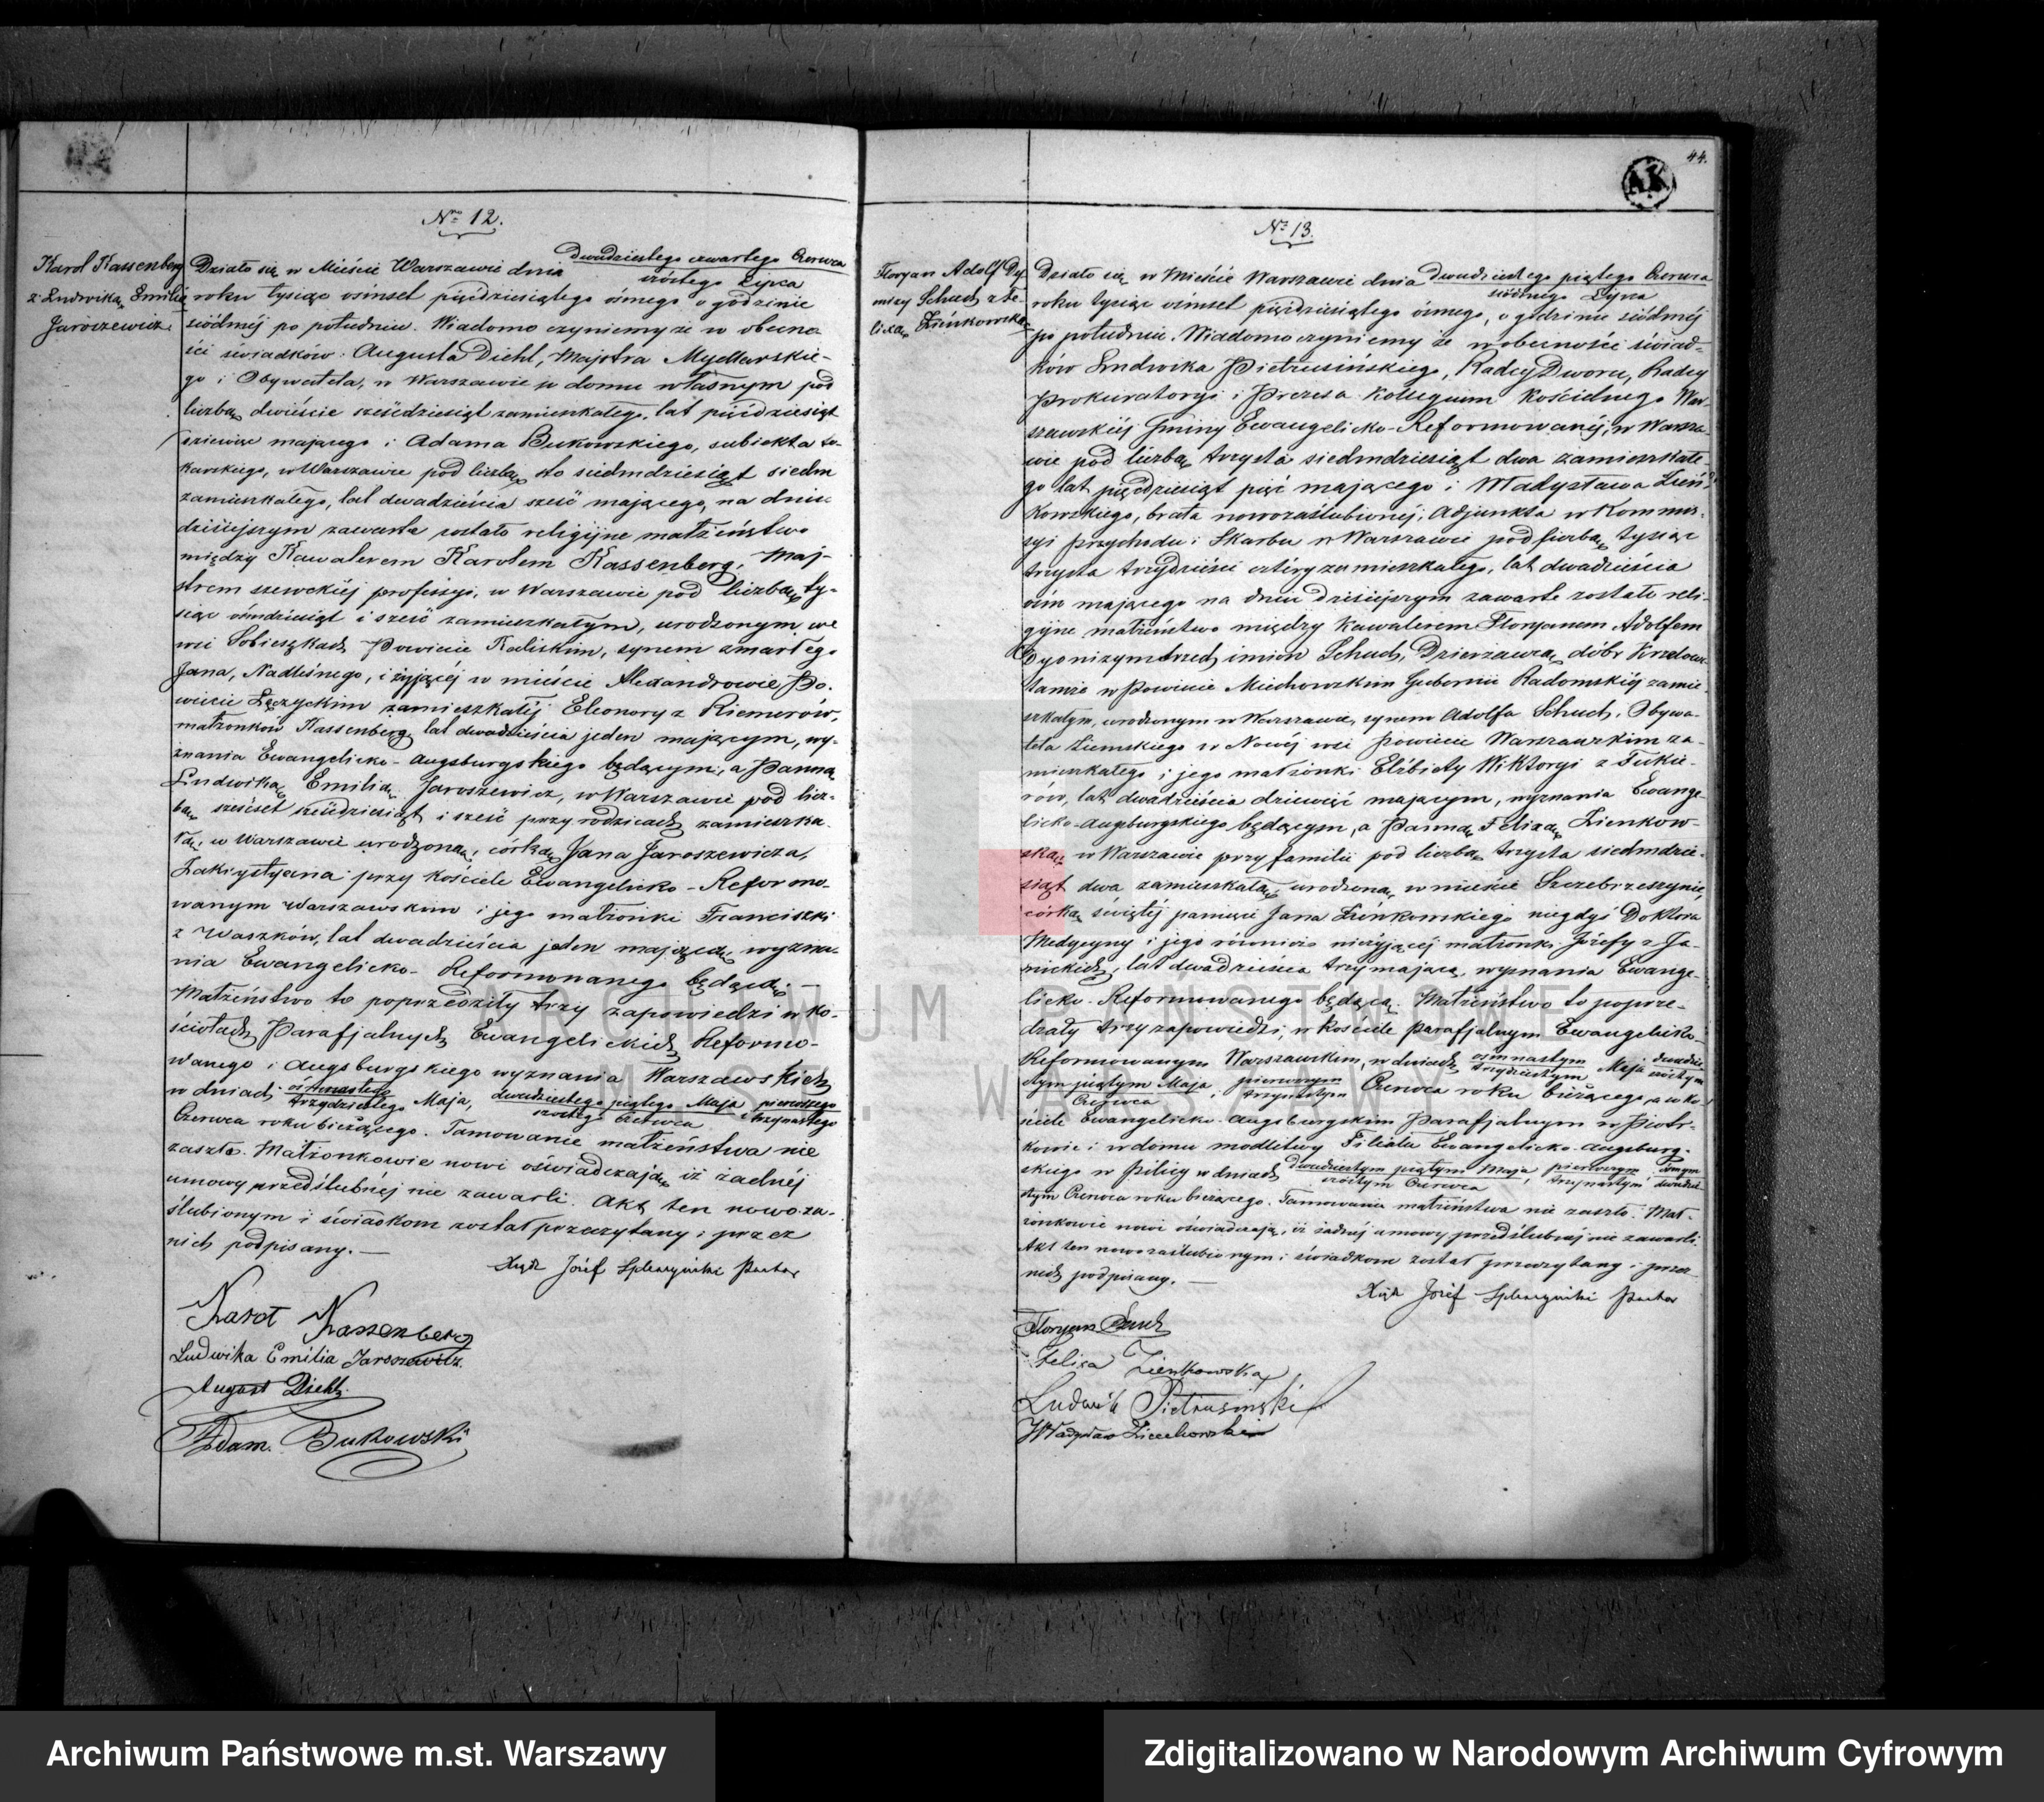 Nro 12.
Karol Kassenberg
z Ludwiką Emilią
Jaroszewicz.
Działo się w Mieście Warszawie dnia dwudziestego czwartego Czerwca
szóstego Lipca
roku tysiąc ośmset pięćdziesiątego ósmego o godzinie
siódméj po południu. Wiadomo czyniemy że w obecno-
ści świadków: Augusta Diehl, Majstra Mydlarskie-
go i Obywatela, w Warszawie w domu własnym pod
liczbą dwieście sześćdziesiąt zamieszkałego, lat pięćdziesiąt
mającego i Adama Bukowskiego, subiekta to-
karskiego, w Warszawie pod liczbą sto siedmdziesiąt siedm
zamieszkałego, lat dwadzieścia sześć mającego, na dniu
dzisiejszym zawarte zostało religijne małżeństwo
między Kawalerem Karolem Kassenberg, Maj-
strem szewckiéj professyi, w Warszawie pod liczbą ty-
siąc ośmdziesiąt i sześć zamieszkałym, urodzonym we
wsi Sobieszkach Powiecie Kaliskim, synem zmarłego
Jana, Nadleśnego, i żyjącéj w mieście Alexandrowie, Po-
wiecie Łęczyckim zamieszkałéj Eleonory z Riemerów,
małżonków Kassenberg, lat dwadzieścia jeden mającym, wy-
znania Ewangelicko-Augsburgskiego będącym; a Panną
Ludwiką Emilią Jaroszewicz, w Warszawie pod licz-
bą sześćset sześćdziesiąt i sześć przy rodzicach zamieszka-
łą, w Warszawie urodzoną, córką Jana Jaroszewicza,
Zakrystyana przy kościele Ewangelicko-Reformo-
wanym Warszawskim i jego małżonki Franciszki
z Waszków, lat dwadzieścia jeden mającą, wyzna-
nia Ewangelicko-Reformowanego będącą. —
Małżeństwo to poprzedziły trzy zapowiedzi w ko-
ściołach Parafjalnych Ewangelickich Reformo-
wanego i Augsburgskiego wyznania Warszawskich
w dniach ośmnastego
trzydziestego Maja, dwudziestego piątego Maja
szóstego Czerwca i pierwszego
trzynastego
Czerwca roku bieżącego. Tamowanie małżeństwa nie
zaszło. Małżonkowie nowi oświadczają iż żadnéj
umowy przedślubnéj nie zawarli. Akt ten nowoza-
ślubionym i świadkom został przeczytany i przez
nich podpisany. —
Xiądz Józef Spleszyński Pastor
Karol Kassenberg
Ludwika Emilia Jaroszewicz.
August Diehl.
Adam Bukowski
44.
AK
No 13.
Floryan Adolf Dy-
nizy Schuch z Fe-
lixą Zienkowską
Działo się w Mieście Warszawie dnia dwudziestego piątego Czerwca
siódmego Lipca
roku tysiąc ośmset pięćdziesiątego ósmego, o godzinie siódméj
po południu. Wiadomo czyniemy że w obecności świad-
ków Ludwika Pietrusińskiego, Radcy Dworu, Radcy
Prokuratoryi i Prezesa Kollegium Kościelnego War-
szawskiéj Gminy Ewangelicko-Reformowanéj, w Warsza-
wie pod liczbą trzysta siedmdziesiąt dwa zamieszkałe-
go lat pięćdziesiąt pięć mającego i Władysława Zień-
kowskiego, brata nowozaślubionéj, Adjunkta w Kommis-
syi Przychodu i Skarbu w Warszawie pod liczbą tysiąc
trzysta trzydzieści cztery zamieszkałego, lat dwadzieścia
ośm mającego na dniu dzisiejszym zawarte zostało reli-
gijne małżeństwo między Kawalerem Floryanem Adolfem
Dyonizym trzech imion Schuch, Dzierżawcą dóbr
tamże w Powiecie Miechowskim Gubernii Radomskiéj zamie-
szkałym, urodzonym w Warszawie, synem Adolfa Schuch, Obywa-
tela Ziemskiego w Nowéj wsi Powiecie Warszawskim za-
mieszkałego i jego małżonki Elżbiety Wiktoryi z Fukie-
rów, lat dwadzieścia dziewięć mającym, wyznania Ewange-
licko-Augsburgskiego będącym, a Panną Felixą Zienkow-
ską w Warszawie przy familii pod liczbą trzysta siedmdzie-
siąt dwa zamieszkałą, urodzoną w mieście Szczebrzeszynie,
córką świętéj pamięci Jana Zienkowskiego niegdyś Doktora
Medycyny i jego również nieżyjącéj małżonki Józefy z Ja-
nickich, lat dwadzieścia trzy mającą, wyznania Ewange-
licko-Reformowanego będącą. Małżeństwo to poprze-
dzały trzy zapowiedzi, w kościele parafjalnym Ewangelicko-
Reformowanym Warszawskim, w dniach ośmnastym
trzydziestym Maja dwudzie-
stym piątym Maja
szóstym Czerwca, pierwszym
trzynastym Czerwca roku bieżącego, a w ko-
ściele Ewangelicko-Augsburgskim Parafjalnym w Piotr-
kowie i w domu modlitwy Filiału Ewangelicko-Augsburg-
skiego w Pilicy w dniach dwudziestym piątym Maja
szóstym Czerwca, pierwszym
trzynastym, ósmym
dwudzie-
stym Czerwca roku bieżącego. Tamowanie małżeństwa nie zaszło. Mał-
żonkowie nowi oświadczają, iż żadnéj umowy przedślubnéj nie zawarli.
Akt ten nowozaślubionym i świadkom został przeczytany i przez
nich podpisany. —
Xiądz Józef Spleszyński Pastor
Floryan Schuch
Felixa Zienkowska
Ludwik Pietrusiński
Władysław Zienkowski
ARCHIWUM PAŃSTWOWE
M.ST. WARSZAWY
Archiwum Państwowe m.st. Warszawy
Zdigitalizowano w Narodowym Archiwum Cyfrowym